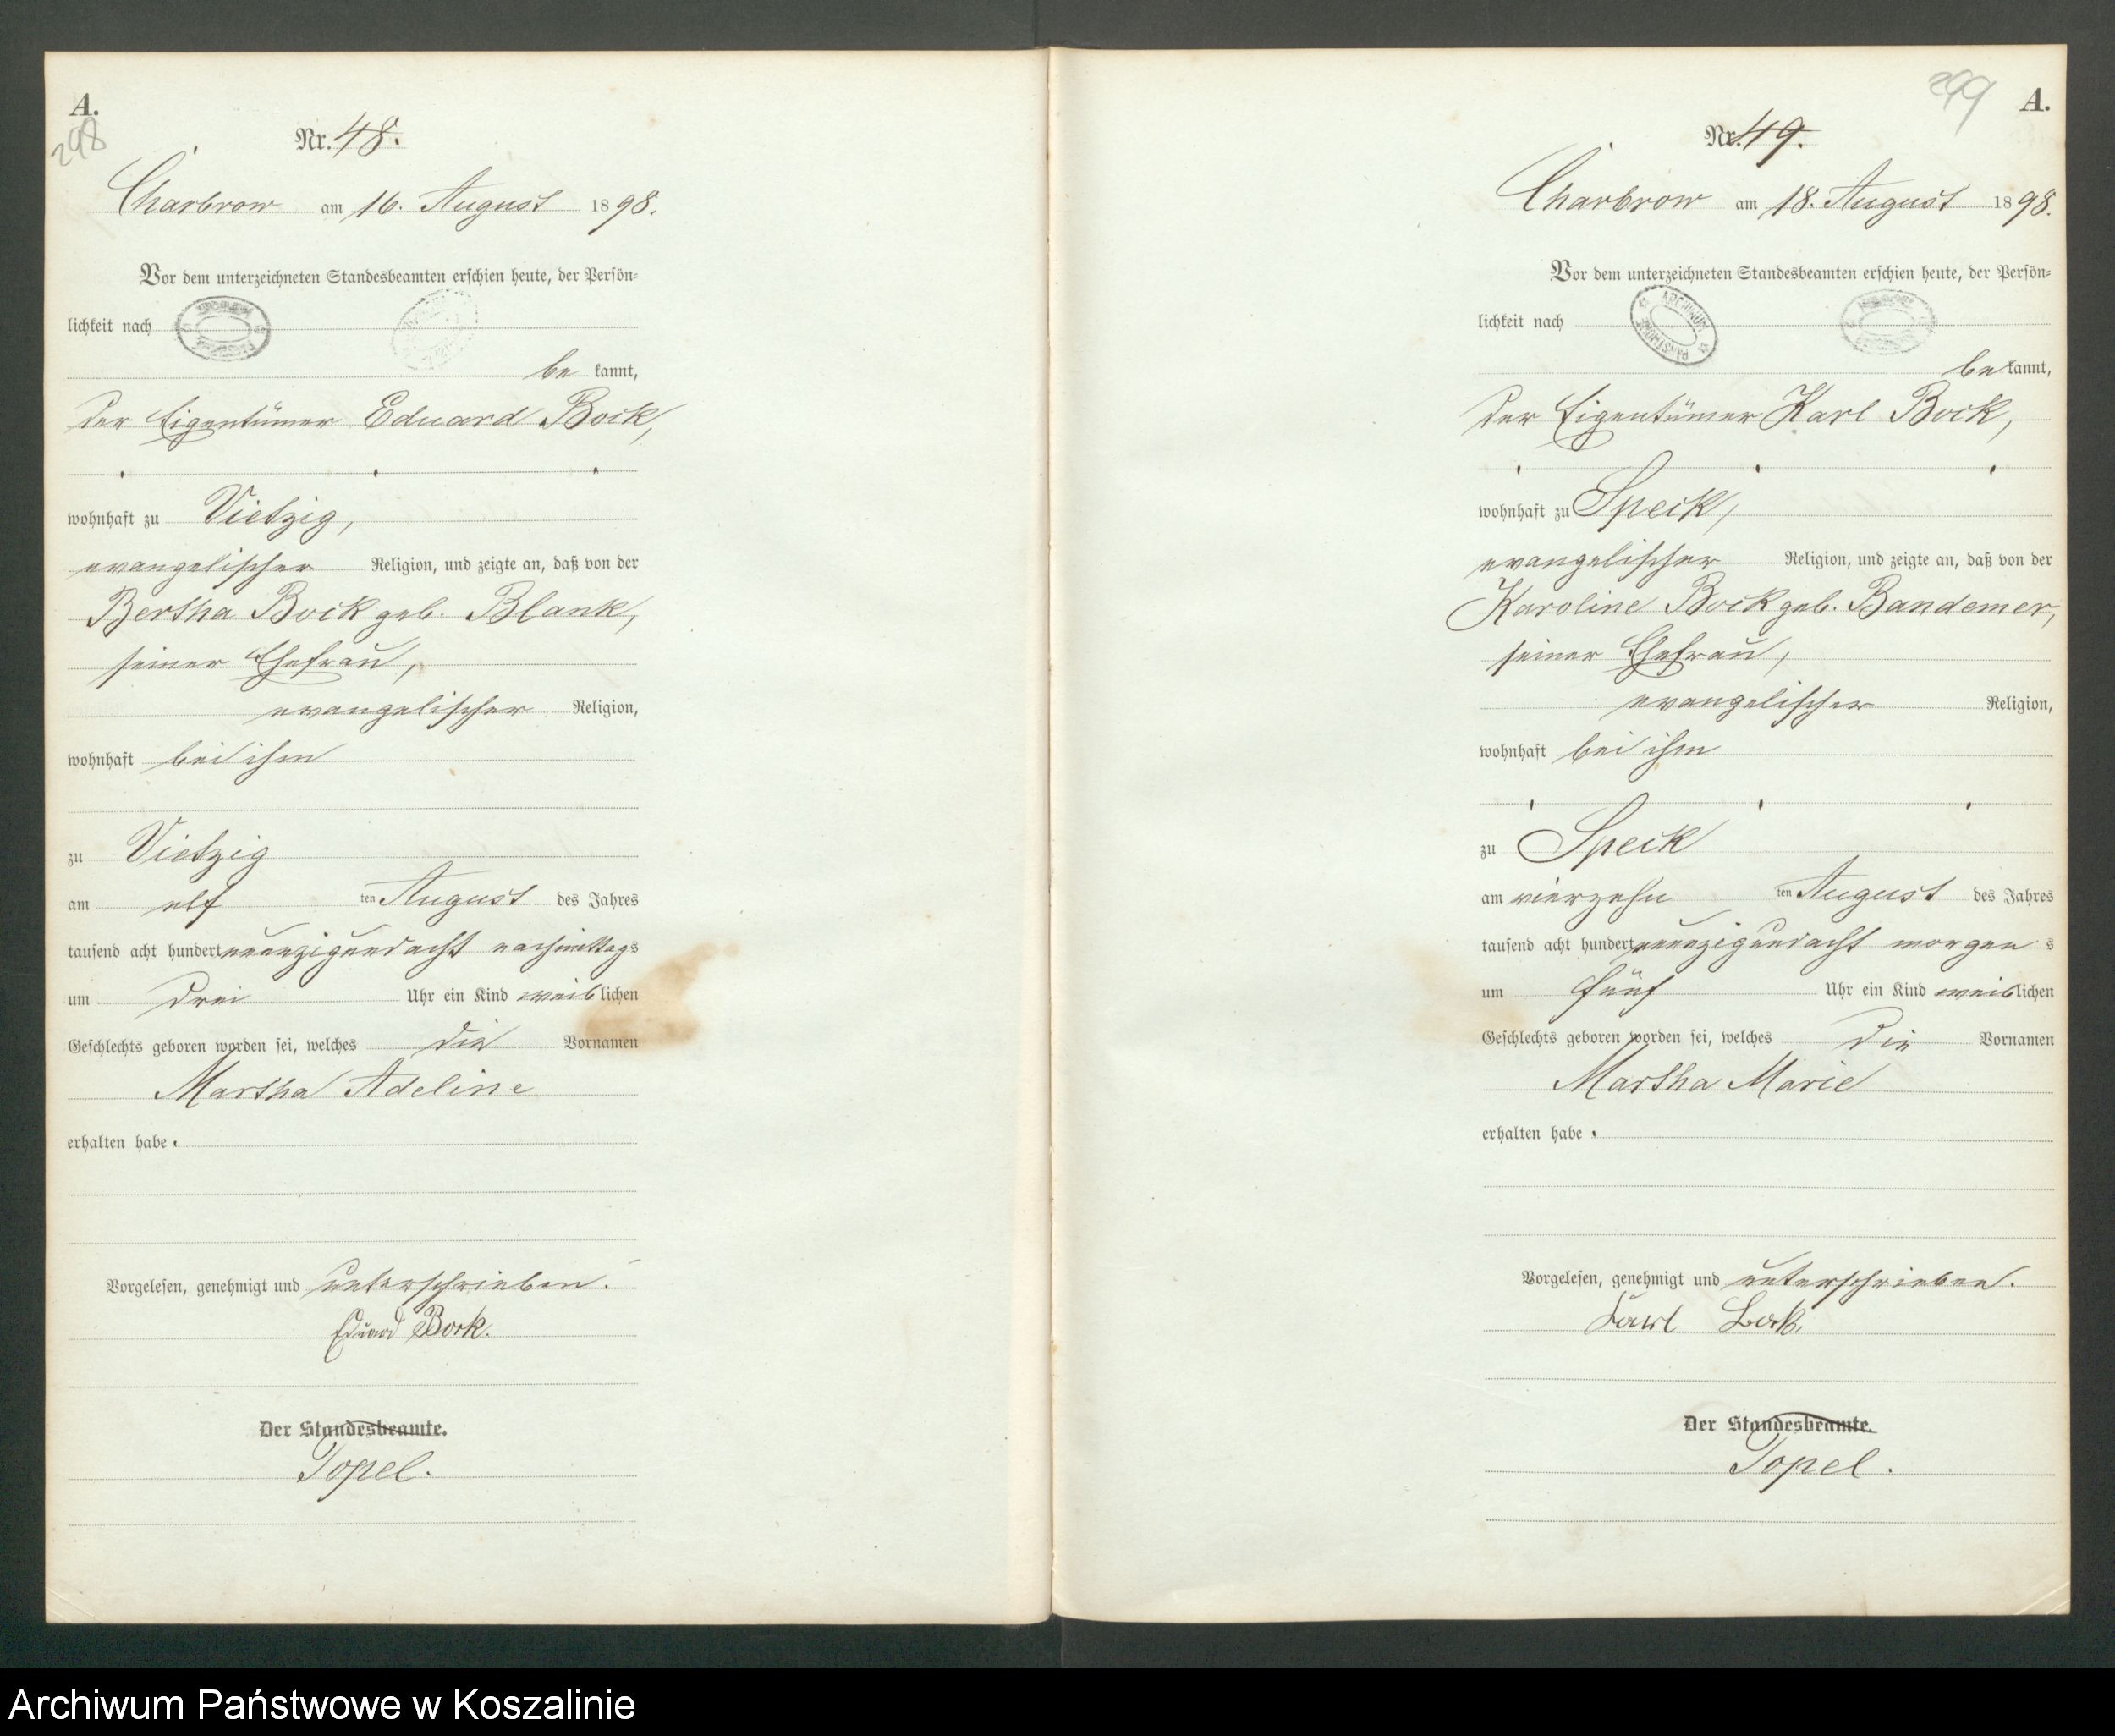 A.
298
Nr. 48.
Charbrow am 16. August 1898.
Vor dem unterzeichneten Standesbeamten erschien heute, der Persön=
lichkeit nach
bekannt,
der Eigentümer Eduard Bock,
wohnhaft zu Vietzig,
evangelischer Religion, und zeigte an, daß von der
Bertha Bock geb. Blank,
seiner Ehefrau,
evangelischer Religion,
wohnhaft bei ihm
zu Vietzig
am elf ten August des Jahres
tausend acht hundert neunzigundacht nachmittags
um drei Uhr ein Kind weiblichen
Geschlechts geboren worden sei, welches die Vornamen
Martha Adeline
erhalten habe.
Vorgelesen, genehmigt und unterschrieben.
Eduard Bock.
Der Standesbeamte.
Topel.
299
A.
Nr. 49.
Charbrow am 18. August 1898.
Vor dem unterzeichneten Standesbeamten erschien heute, der Persön=
lichkeit nach
ARCHIWUM PAŃSTWOWE
bekannt,
der Eigentümer Karl Bock,
wohnhaft zu Speck,
evangelischer Religion, und zeigte an, daß von der
Karoline Bock geb. Bandemer,
seiner Ehefrau,
evangelischer Religion,
wohnhaft bei ihm
zu Speck
am vierzehn ten August des Jahres
tausend acht hundert neunzigundacht morgens
um fünf Uhr ein Kind weiblichen
Geschlechts geboren worden sei, welches die Vornamen
Martha Marie
erhalten habe.
Vorgelesen, genehmigt und unterschrieben.
Karl Bock.
Der Standesbeamte.
Topel.
Archiwum Państwowe w Koszalinie